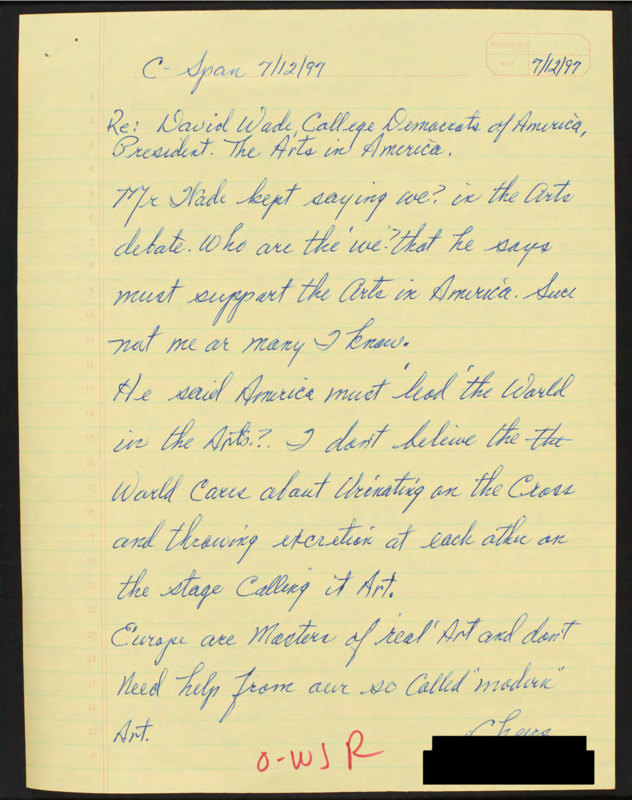 C-Span 7/12/97
7/12/97
DATE
Re: David Wade, College Democrats of America,
President. The Arts in America.
Mr Wade kept saying we? in the Arts
debate. Who are the 'we'? that he says
must support the Arts in America. Sure
not me or many I know.
He said America must 'lead' the World
in the Arts?. I don't beleive the the
World Cares about Urinating on the Cross
and throwing excretion at each other on
the stage Calling it Art.
Europe are Masters of 'real' Art and don't
Need help from our so Called "modern"
Art.
Cheers
O-WJR